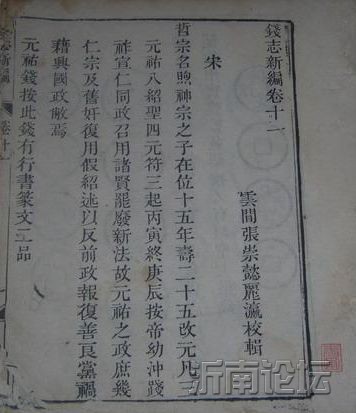 錢志新編卷十一
雲間張崇懿麗瀛校輯
宋
哲宗名煦神宗之子在位十五年壽二十五改元凡三
元祐八紹聖四元符三起丙寅終庚辰按帝幼沖踐
祚宣仁同政召用諸賢罷廢新法故元祐之政庶幾
仁宗及舊奸復用假紹述以反前政報復善良黨禍
藉興國政敝焉
元祐錢按此錢有行書篆文二品
沂南论坛